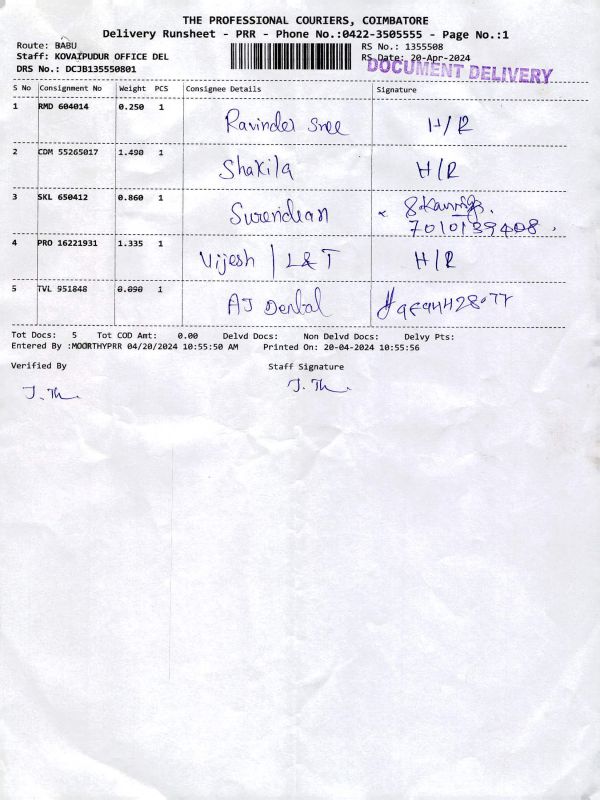 THE PROFESSIONAL COURIERS, COIMBATORE
Delivery Runsheet - PRR - Phone No.:0422-3505555 - Page No.:1
Route: BABU RS No.: 1355508
Staff: KOVAIPUDUR OFFICE DEL RS Date: 20-Apr-2024
DRS No.: DCJB135550801 DOCUMENT DELIVERY
S No Consignment No Weight PCS Consignee Details Signature
1 RMD 604014 0.250 1 Ravinder Sree H/R
2 COM 55265017 1.490 1 Shakila H/R
3 SKL 650412 0.860 1 Surendran
7010139408
4 PRO 16221931 1.335 1 Vijesh / L&T H/R
5 TVL 951848 0.090 1 AJ Dental
Tot Docs: 5 Tot COD Amt: 0.00 Delvd Docs: Non Delvd Docs: Delvy Pts:
Entered By :MOORTHYPRR 04/20/2024 10:55:50 AM Printed On: 20-04-2024 10:55:56
Verified By Staff Signature
J. Th. J. Th.